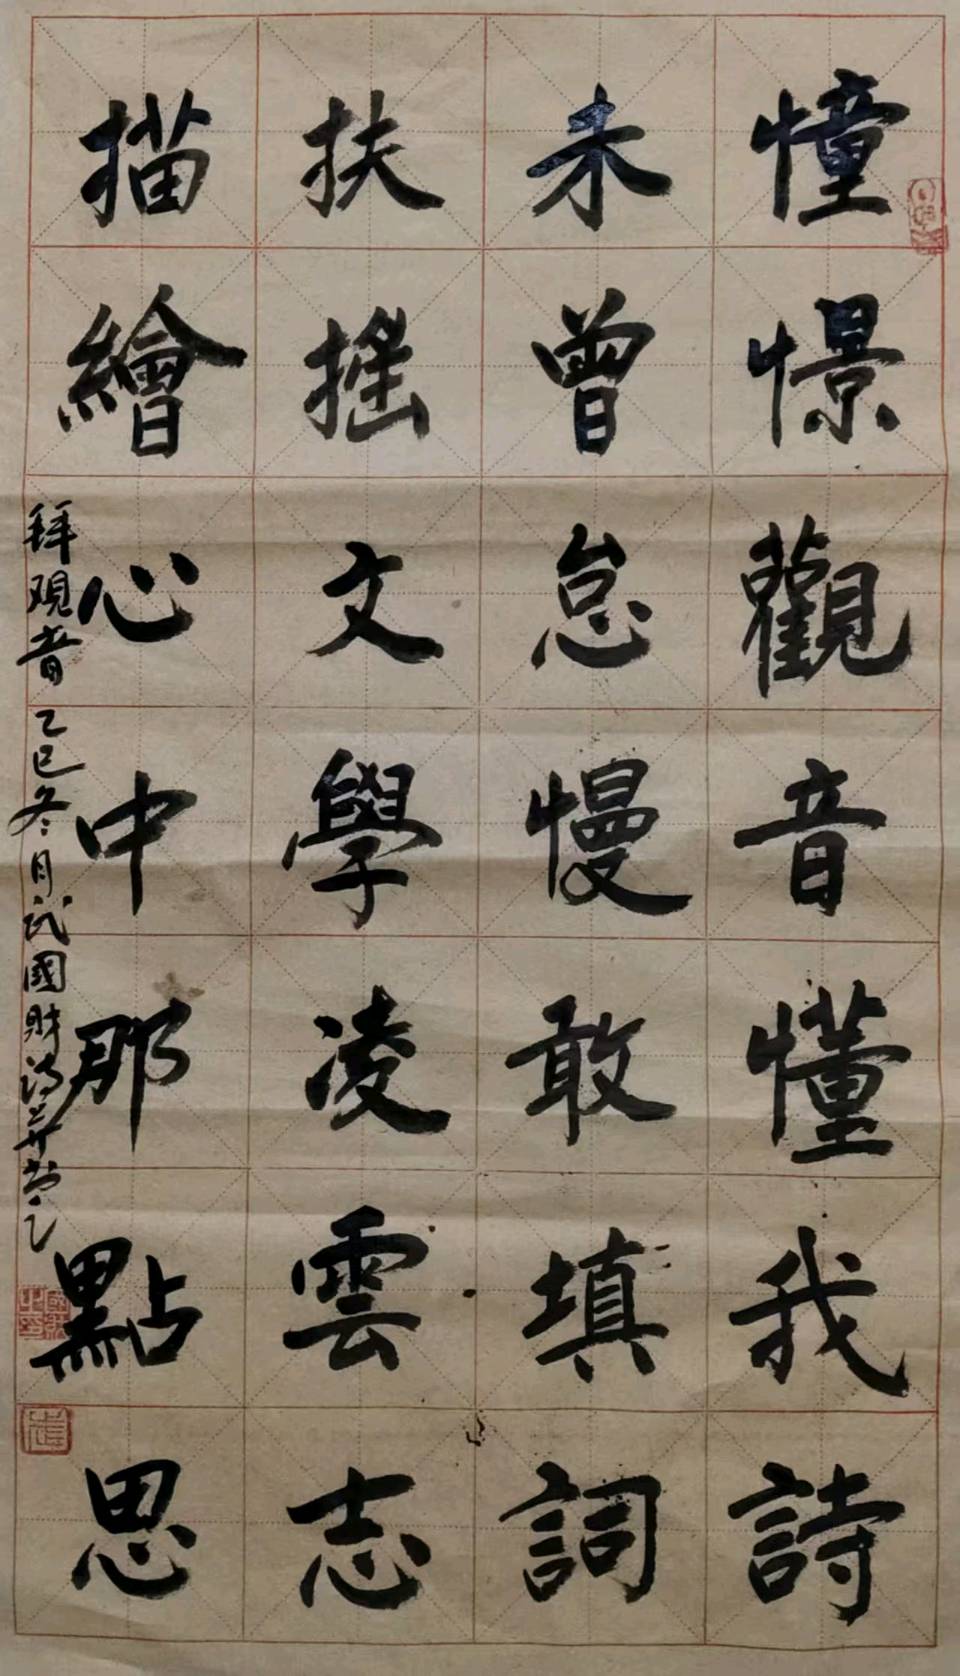 憧憬觀音懂我詩
未曾怠慢敢填詞
扶搖文學凌雲志
描繪心中那點思
拜观音 乙巳冬月武國財